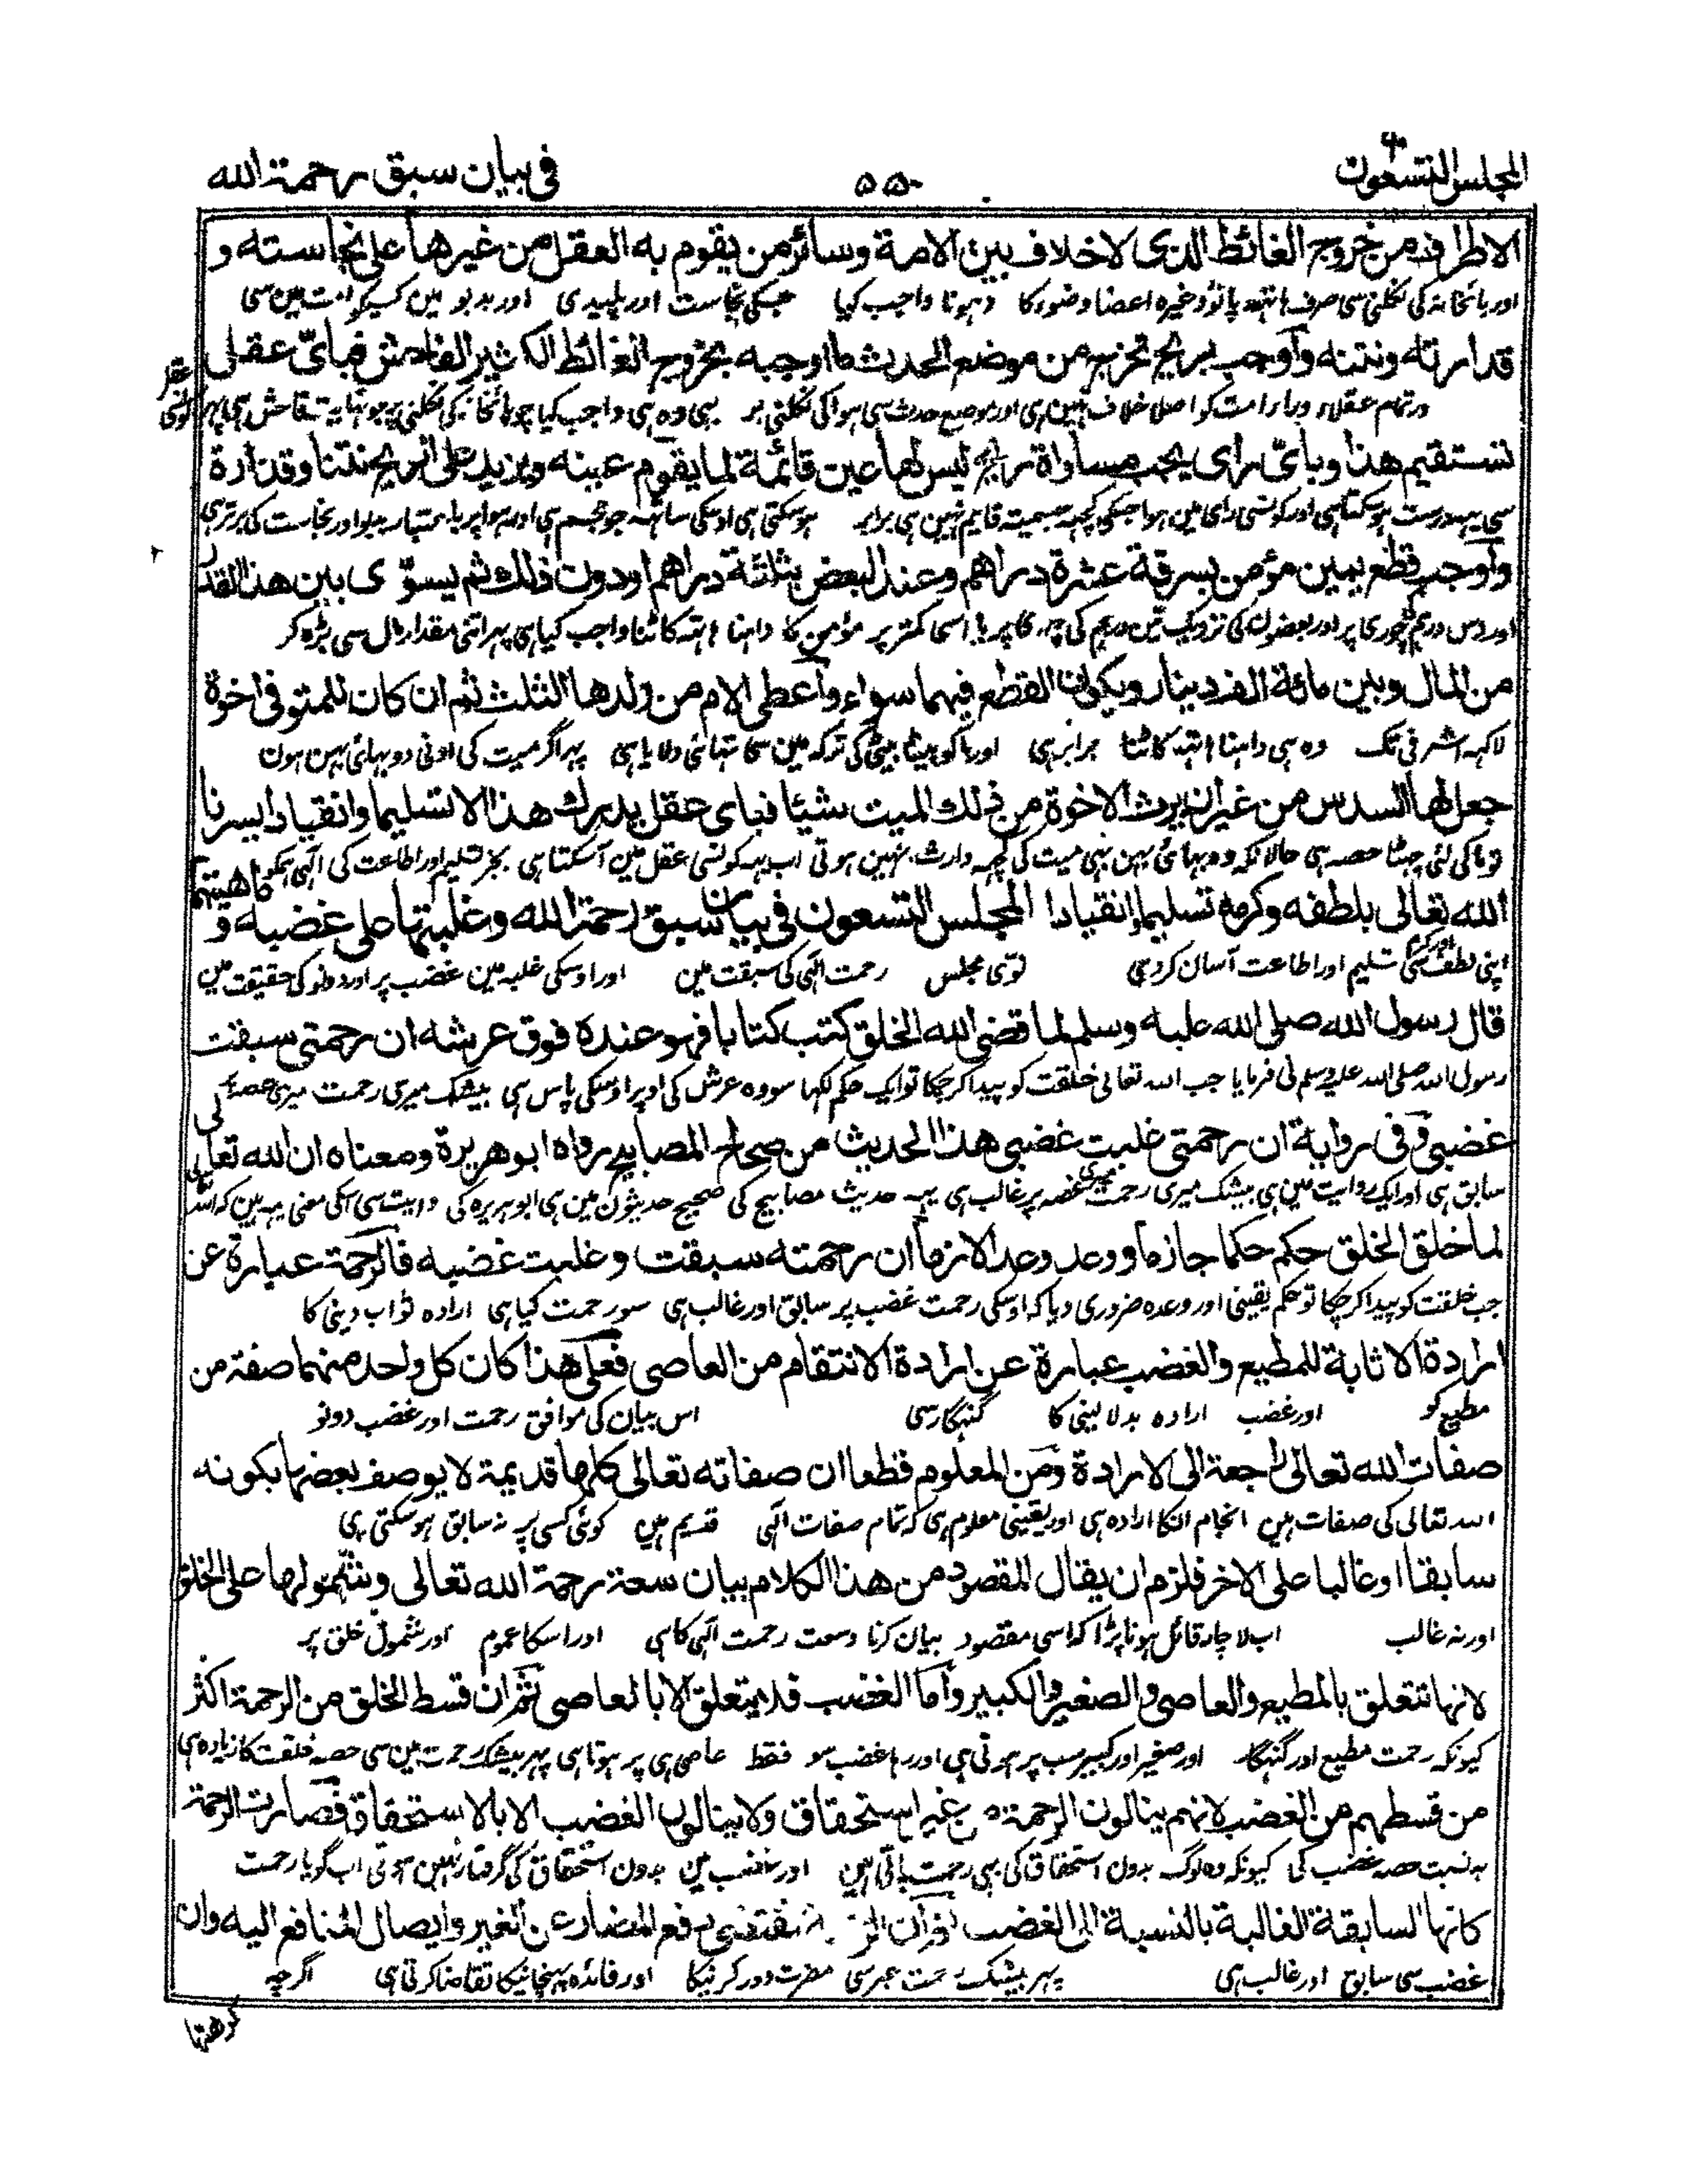 المجلس التسعون ۵۵۰ فى بيان سبق رحمة الله
الاطراف من خروج الغائط الذى لاخلاف بين الامة وسائر من يقوم به العقل من غيرها على نجاسته و
اور پائخانہ کی نکلنی سی صرف ہاتھہ پانؤ وغیرہ اعضا وضوء کا دہونا واجب کیا جسکی نجاست اور پلیدی اور بدبو مین کسیکو امت مین سی
قذارته ونتنه وأوجب بريح تخرج من موضع الحدث ما اوجبه بخروج الغائط الكثير الفاحش فبأىّ عقل
ور تمام عقلاء کو اصلا خلاف نہین ہی اور موضع حدث سی ہوا کی نکلنی پر بہی وہ ہی واجب کیا جو پائخانہ کی نکلنی پر جو نہایت فاحش ہی پہر کونسی عقل
تستقيم هذا وبأىّ راى يجب مساواة ريح ليس لها عين قائمة لما يقوم عينه ويزيد على الريح نتنا وقذارة
سی یہہ درست ہوسکتا ہی اور کونسی رای مین ہوا جسکی کچہہ جسمیت قایم نہین ہی برابر ہوسکتی ہی اوسکی ساتہہ جو مجسم ہی اور ہوا پر باعتبار بدبو اور نجاست کی برتری
وأوجب قطع يمين مؤمن بسرقة عشرة دراهم وعند البعض بثلثة دراهم او دون ذلك ثم يسوّى بين هذا القدر
اور دس درہم کی چوری پر اور بعضوں کی نزدیک تین درہم کی چوری پر یا اسی کمتر پر مؤمن کا داہنا ہاتہہ کاٹنا واجب کیا ہی پہر اتنی مقدار مال سی بڑہ کر
من المال وبين مائة الف دينار ويكون القطع فيهما سواء وأعطى الام من ولدها الثلث ثم ان كان للمتوفى اخوة
لاکہہ اشرفی تک وہ ہی داہنا ہاتہہ کاٹنا برابر ہی اور ماکو بیٹا بیٹی کی ترکہ مین سی تہائی دلایا ہی پہر اگر میت کی اونی دو بہائی بہن ہون
جعل لها السدس من غير ان يرث الاخوة من ذلك الميت شيئا فبأى عقل يدرك هذا الا تسليما وانقيادا يسرنا
تو ما کی لئی چہٹا حصہ ہی حالانکہ دو بہائی بہن بہی میت کی کچہہ وارث نہین ہوتی اب یہہ کونسی عقل مین آسکتا ہی بجز تسلیم اور اطاعت کی الہی ہمکو
الله تعالى بلطفه وكرمه تسليما وانقيادا المجلس التسعون فى بيان سبق رحمة الله وغلبتها على غضبه و ماهيتهما
اپنی لطف اور کرم سی تسلیم اور اطاعت آسان کردی نوّی مجلس رحمت الہی کی سبقت مین اور اوسکی غلبہ مین غضب پر اور دونو کی حقیقت مین
قال رسول الله صلى الله عليه وسلم لما قضى الله الخلق كتب كتابا فهو عنده فوق عرشه ان رحمتى سبقت
رسول اللہ صلی اللہ علیہ وسلم نی فرمایا جب اللہ تعالی خلقت کو پیدا کرچکا تو ایک حکم لکہا سو وہ عرش کی اوپر اوسکی پاس ہی بیشک میری رحمت میری غصہ سی
غضبى وفى رواية ان رحمتى غلبت غضبى هذا الحديث من صحاح المصابيح رواه ابو هريرة ومعناه ان الله تعالى
سابق ہی اور ایک روایت مین ہی بیشک میری رحمت میری غصہ پر غالب ہی یہہ حدیث مصابیح کی صحیح حدیثون مین ہی ابو ہریرہ کی روایت سی اسکی معنی یہہ ہین کہ اللہ تعالی
لما خلق الخلق حكم حكما جازما ووعد وعدا لازما ان رحمته سبقت وغلبت غضبه فالرحمة عبارة عن
جب خلقت کو پیدا کرچکا تو حکم یقینی اور وعدہ ضروری دیا کہ اوسکی رحمت غضب پر سابق اور غالب ہی سو رحمت کیا ہی ارادہ ثواب دینی کا
ارادة الاثابة للمطيع والغضب عبارة عن ارادة الانتقام من العاصى فعلى هذا كان كل واحد منهما صفة من
مطیع کو اور غضب ارادہ بدلا لینی کا گنہگار سی اس بیان کی موافق رحمت اور غضب دونو
صفات الله تعالى راجعة الى الارادة ومن المعلوم قطعا ان صفاته تعالى كلها قديمة لا يوصف بعضها بكونه
اللہ تعالی کی صفات ہین انجام انکا ارادہ ہی اور یقینی معلوم ہی کہ تمام صفات الہی قدیم ہین کوئی کسی پر نہ سابق ہوسکتی ہی
سابقا او غالبا على الاخر فلزم ان يقال المقصود من هذا الكلام بيان سعة رحمة الله تعالى وشمولها على الخلق
اور نہ غالب اب لاچار قائل ہونا پڑا کہ اسی مقصود بیان کرنا وسعت رحمت الہی کا ہی اور اسکا عموم اور شمول خلق پر
لانها تتعلق بالمطيع والعاصى والصغير والكبير وأما الغضب فلا يتعلق الا بالعاصى ثم ان قسط الخلق من الرحمة اكثر
کیونکہ رحمت مطیع اور گنہگار اور صغیر اور کبیر سب پر ہوتی ہی اور رہا غضب سو فقط عاصی ہی پر ہوتا ہی پہر بیشک رحمت مین سی حصہ خلقت کا زیادہ ہی
من قسطهم من الغضب لانهم ينالون الرحمة غير استحقاق ولا ينالون الغضب الا بالاستحقاق فصارت الرحمة
بہ نسبت حصہ غضب کی کیونکہ وہ لوگ بدون استحقاق کی بہی رحمت پاتی ہین اور غضب مین بدون استحقاق کی گرفتار نہین ہوتی اب گویا رحمت
كانها السابقة الغالبة بالنسبة الى الغضب تقتضى دفع المضار عن الغير وايصال المنافع اليه وان
غضب سی سابق اور غالب ہی پہر بیشک رحمت مضرت دور کرنیکا اور فائدہ پہنچانیکا تقاضا کرتی ہی اگرچہ
كرهتها